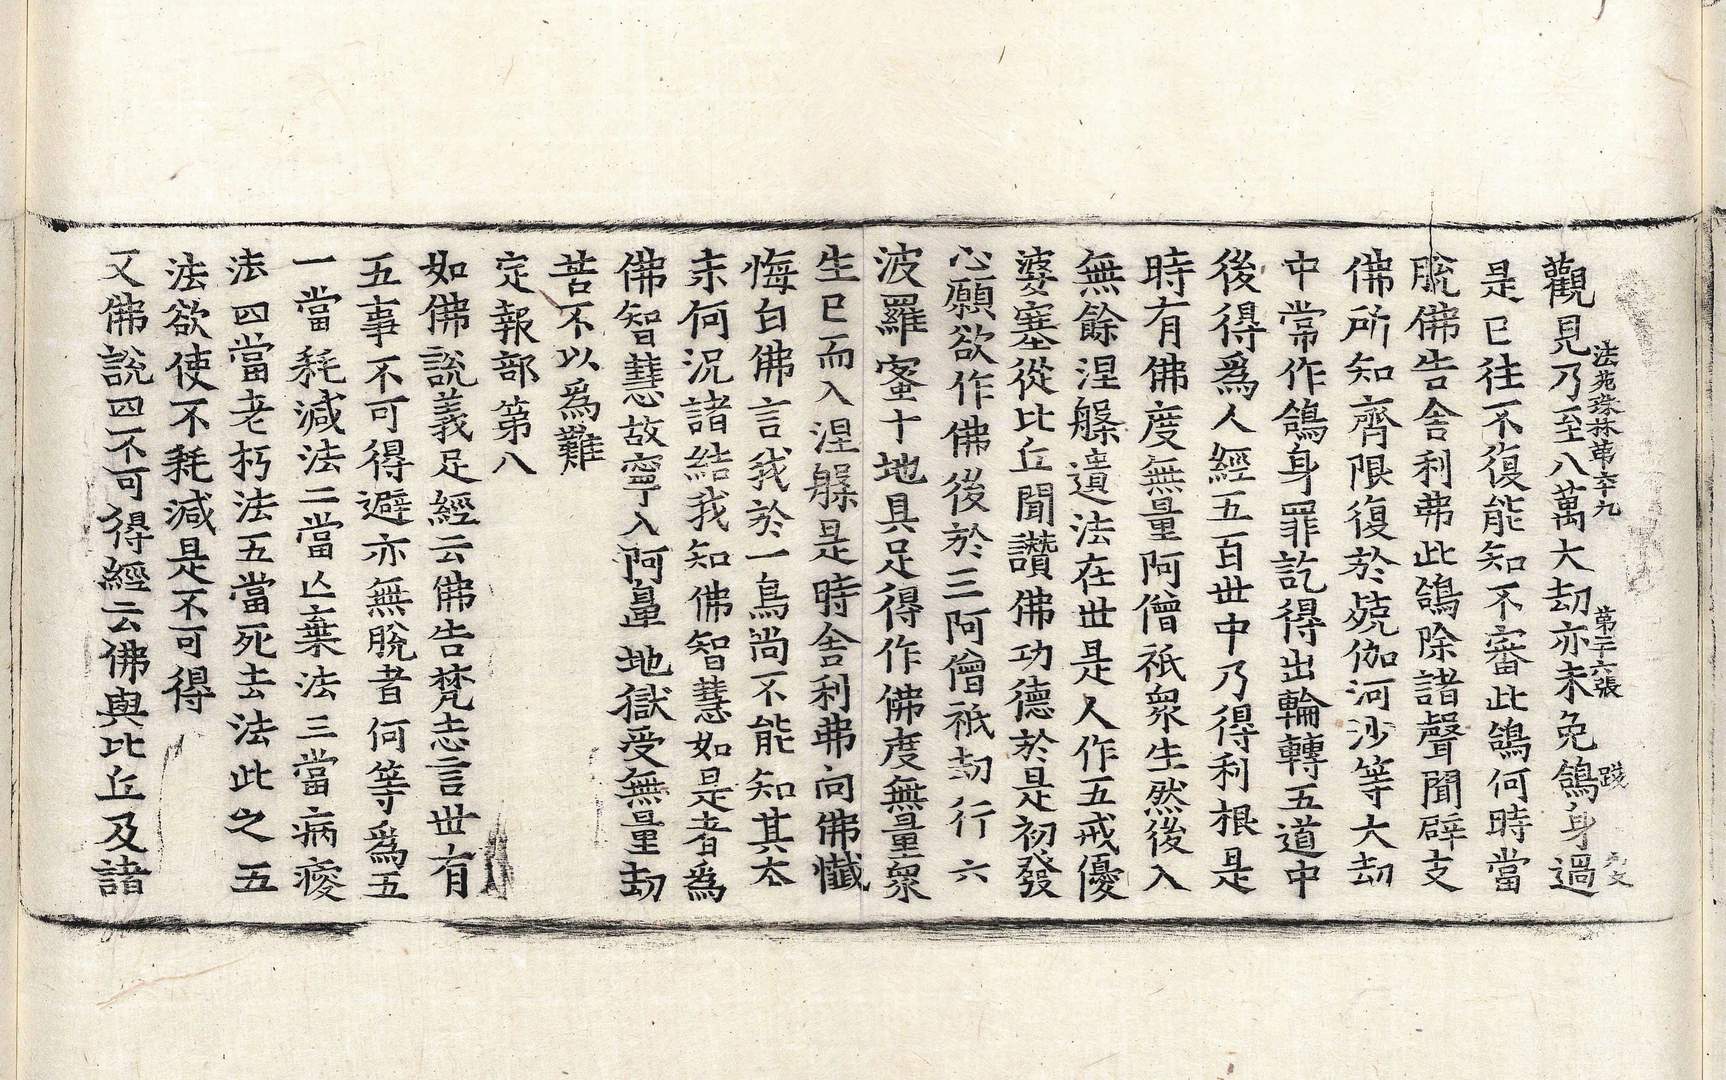 法苑珠林第六十九 第二十六張 踐
觀見乃至八萬大劫亦未免鴿身過
是已往不復能知不審此鴿何時當
脫佛告舍利弗此鴿除諸聲聞辟支
佛所知齊限復於殑伽河沙等大劫
中常作鴿身罪訖得出輪轉五道中
後得爲人經五百世中乃得利根是
時有佛度無量阿僧祇衆生然後入
無餘涅槃遺法在世是人作五戒優
婆塞從比丘聞讚佛功德於是初發
心願欲作佛後於三阿僧祇劫行六
波羅蜜十地具足得作佛度無量衆
生已而入涅槃是時舍利弗向佛懺
悔白佛言我於一鳥尚不能知其本
末何況諸結我知佛智慧如是者爲
佛智慧故寧入阿鼻地獄受無量劫
苦不以爲難
定報部第八
如佛說義足經云佛告梵志言世有
五事不可得避亦無脫者何等爲五
一當耗減法二當亾棄法三當病瘦
法四當老朽法五當死去法此之五
法欲使不耗減是不可得
又佛說四不可得經云佛與比丘及諸